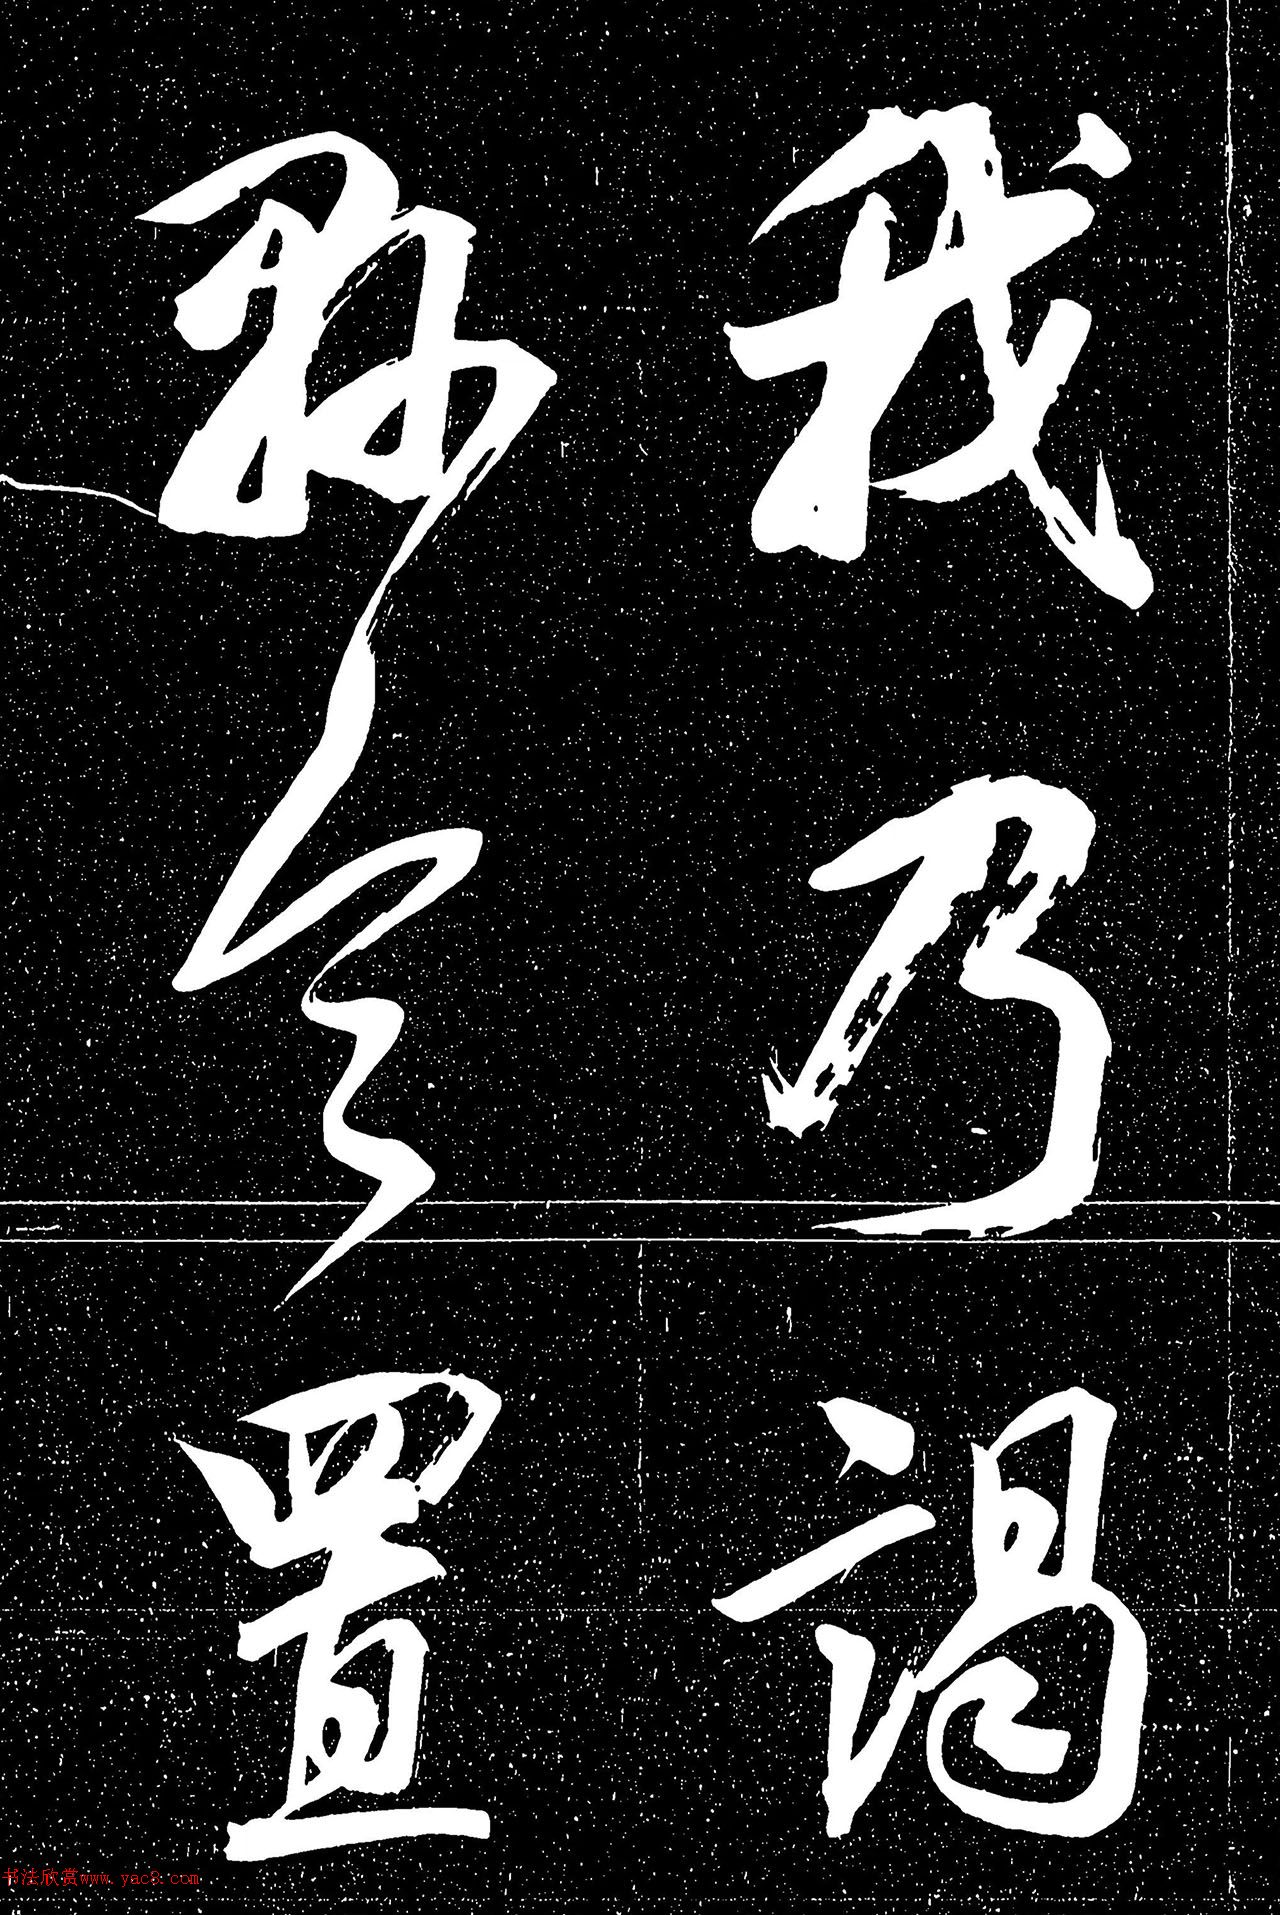 我乃謁
縣令置
书法欣赏www.yac8.com